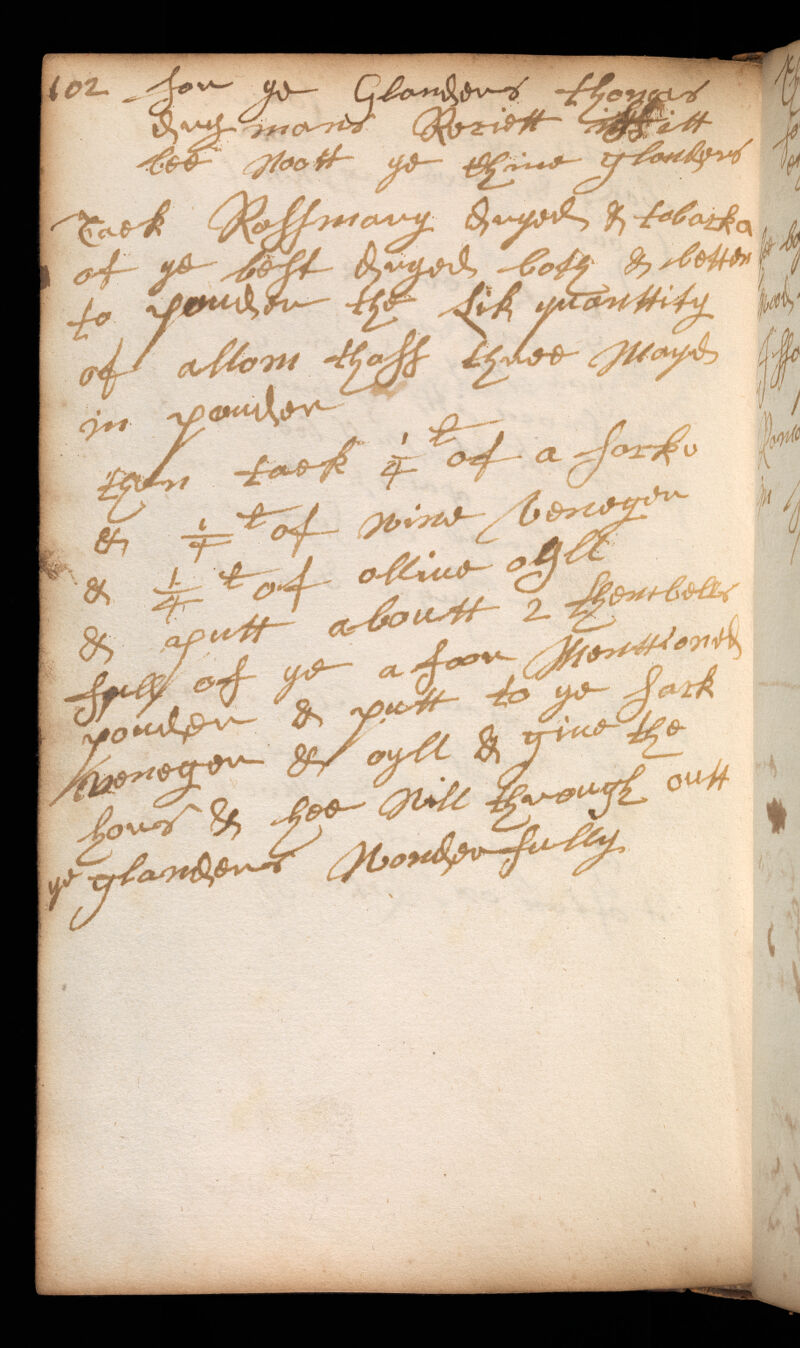 102 for ye Glanders thomas
drymans Reciett iff itt
bee Nott ye thine glanders
Taek Rossmary dryed & tobacka
of ye best dryed both & betten
to pouder the lik quanttity
of allom thass three Mayd
in pouder
then taek 1/4 t of a sack
& 1/4 t of wine Veneger
& 1/4 t of ollive oyll
& putt aboutt 2 thembells
full of ye a foor Menttioned
pouder & putt to ye sack
veneger & oyll & give the
hors & hee Will through outt
ye glanders Wonderfully